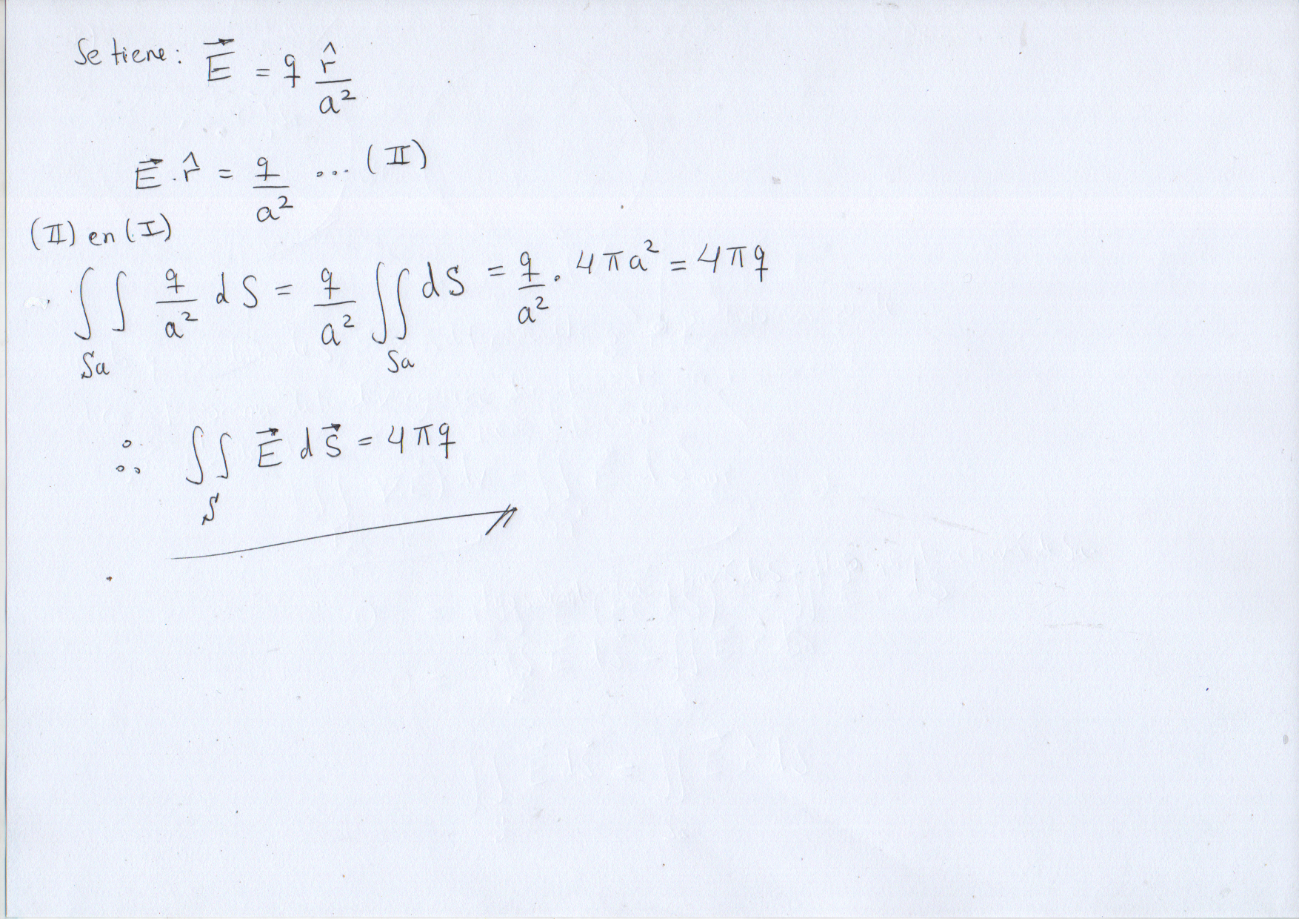 Se tiene: $\vec{E} = q \frac{\hat{r}}{a^2}$
$\vec{E} \cdot \hat{r} = \frac{q}{a^2}$ ... (II)
(II) en (I)
$\iint_{Sa} \frac{q}{a^2} dS = \frac{q}{a^2} \iint_{Sa} dS = \frac{q}{a^2} \cdot 4\pi a^2 = 4\pi q$
$\therefore \iint_{S} \vec{E} \, d\vec{S} = 4\pi q$